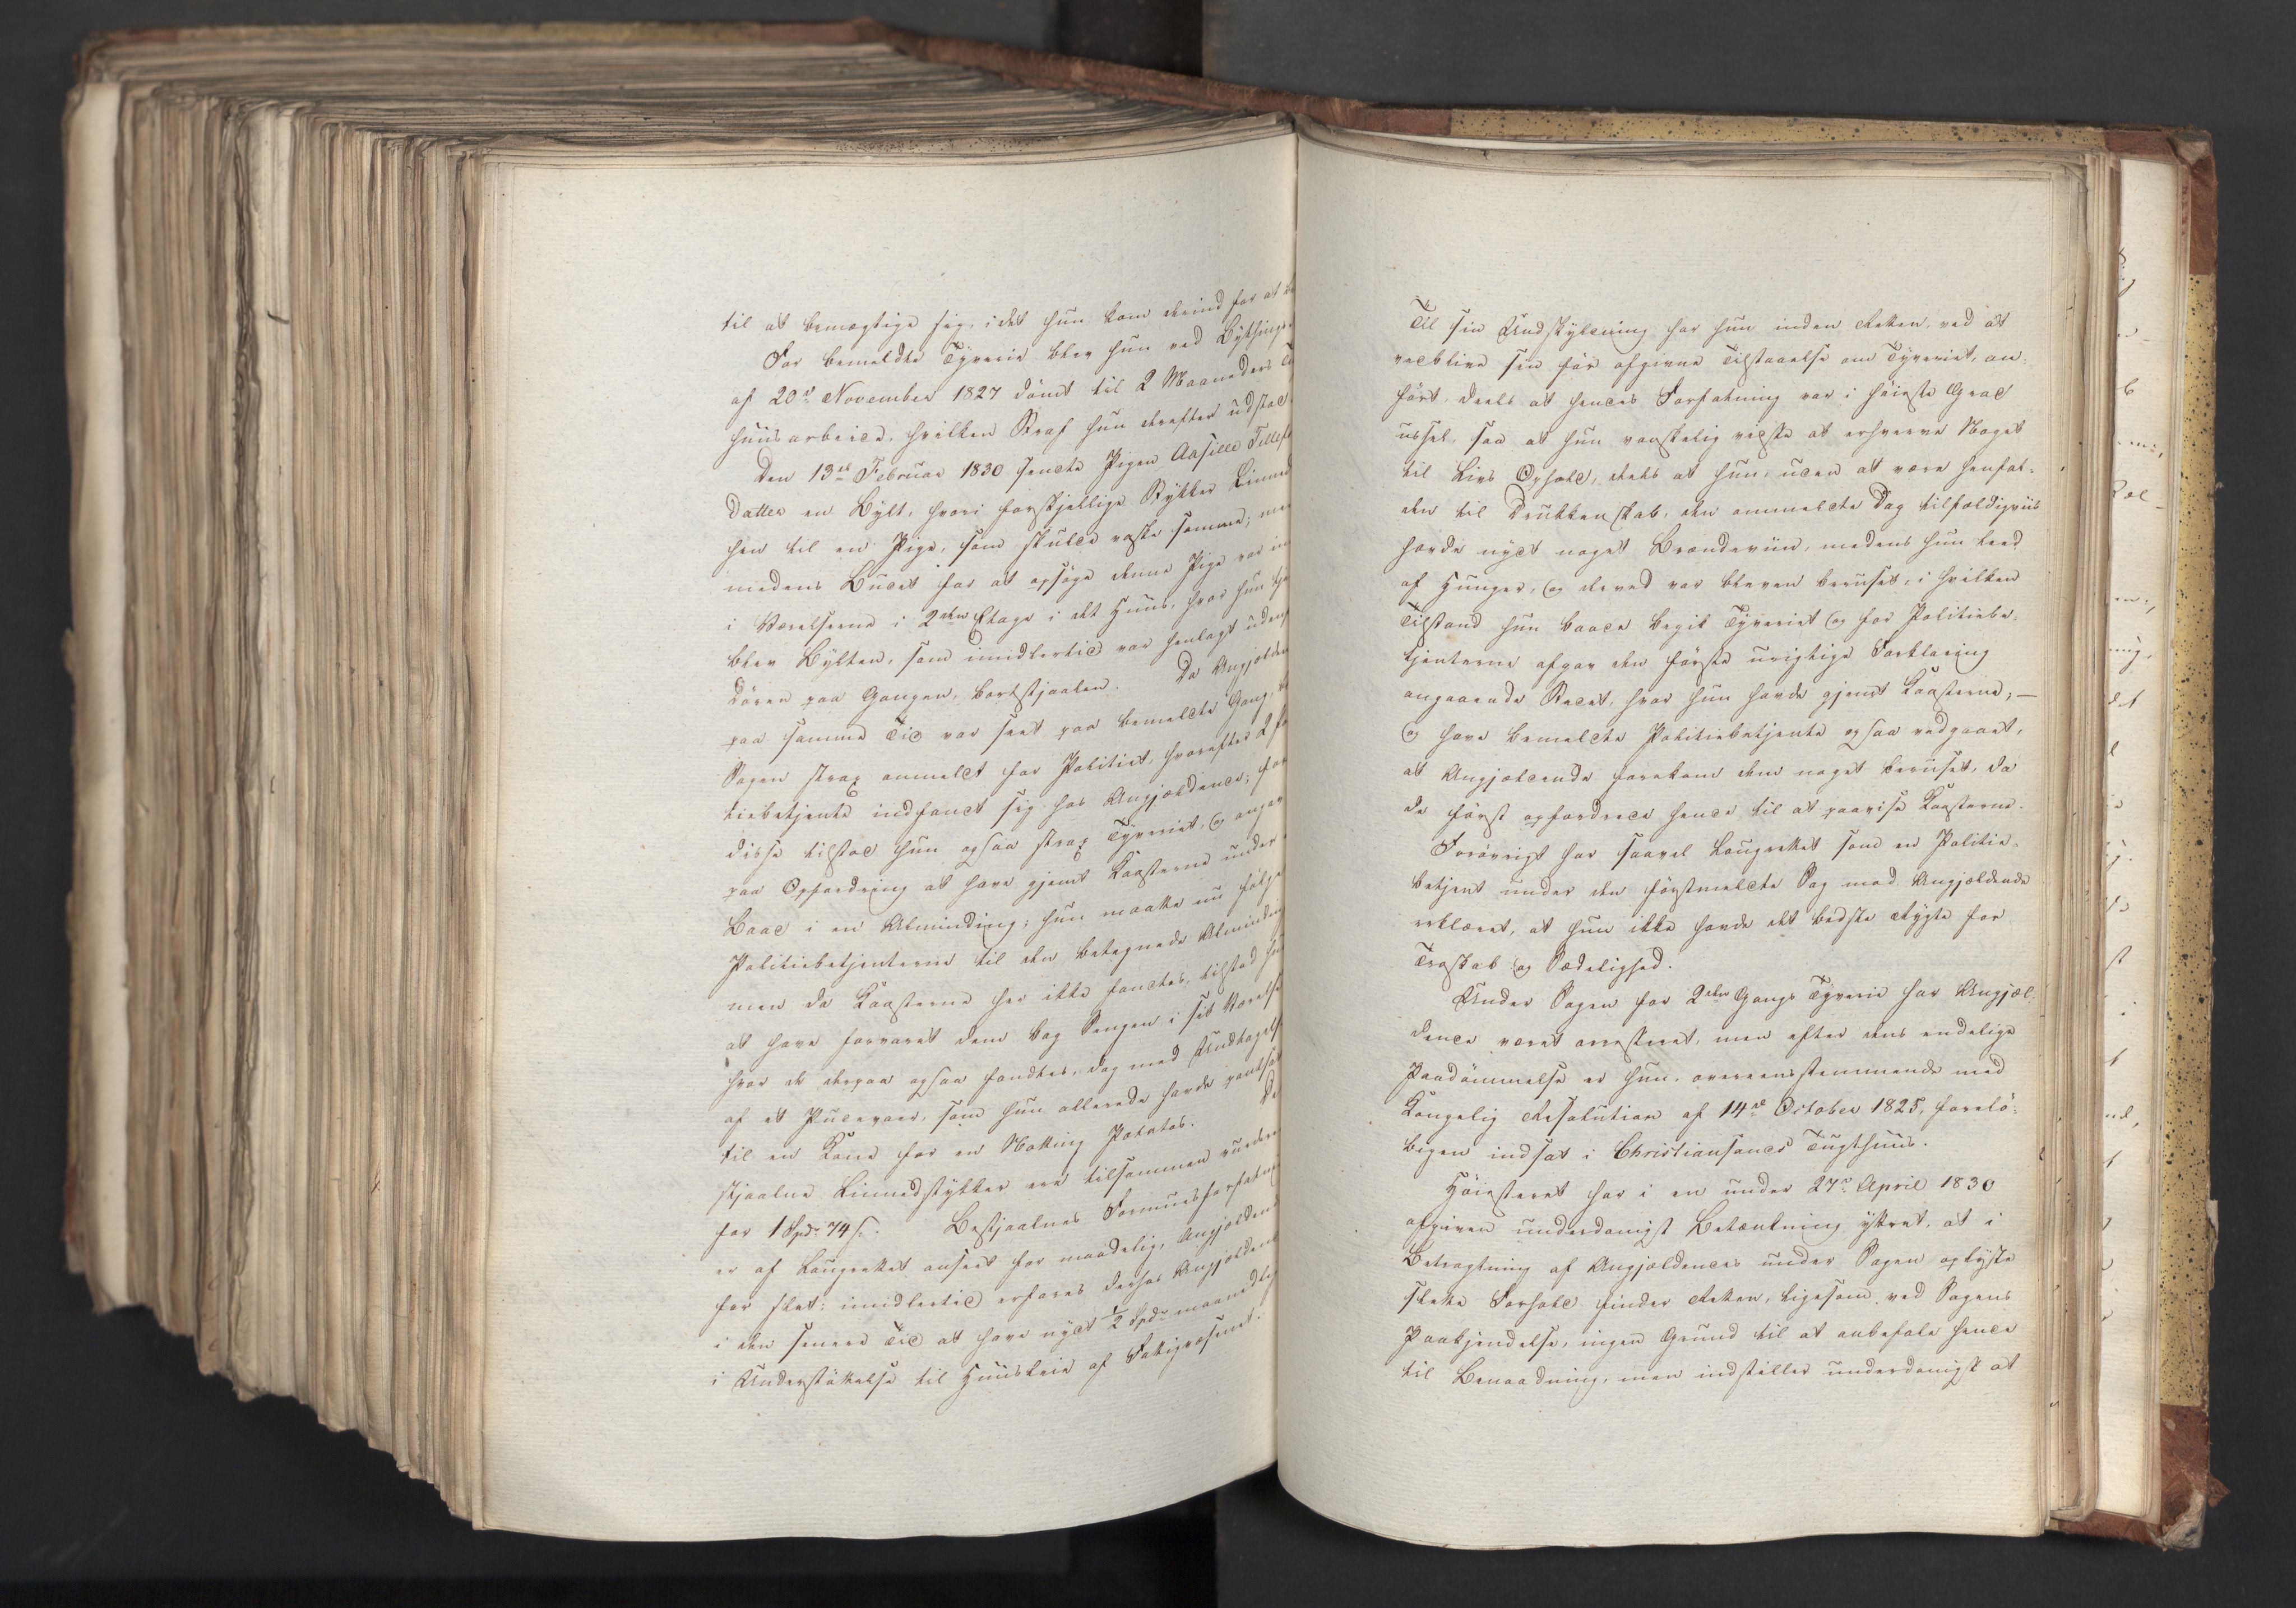 til at bemægtige sig, idet hun kom derind for at
For bemeldte Tyverie blev hun ved Bythings
af 20de November 1827 dømt til 2 Maaneders
huusarbeide, hvilken Straf hun derefter udstod
Den 13de Februar 1830 sendte Pigen Aasille Tellefs
datter en Bylt, hvori forskjellige Stykker Linned
hen til en Pige, som skulde vaske samme; men
medens Budet for at opsøge denne Pige var in
i Værelserne i 2den Etage i det Huus, hvor hun
blev Bylten, som imidlertid var henlagt udenfor
Døren paa Gangen, bortstjaalen. Da Angjælden
paa samme Tid var seet paa bemeldte Gang,
Sagen strax anmeldt for Politiet, hvorefter 2
tiebetjente indfandt sig hos Angjældende; for
disse tilstod hun ogsaa strax Tyveriet, og angav
paa Opfordring at have gjemt Kosterne under
Baad i en Alminding; hun maatte nu følge
Politiebetjenterne til den betegnede Alminding
men da Kosterne her ikke fandtes, tilstod hun
at have forvaret dem bag Sengen i sit Værelse
hvor de derpaa ogsaa fandtes, dog med Undtagelse
af et Pudevaar, som hun allerede havde pantsat
til en Kone for en Notting Potatos. De
stjaalne Linnedstykker ere tilsammen vurderet
for 1 Spd. 74 s. Bestjaalnes Formuesforfatning
er af Laugrettet anseet for maadelig, Angjældendes
for slet: imidlertid erfares derhos Angjældende
i den senere Tid at have nydt ½ Spd. maanedlig
i Understøttelse til Huusleie af Fattigvæsenet.
Til sin Undskyldning har hun inden Retten, ved at
vedblive sin før afgivne Tilstaaelse om Tyveriet, an-
ført, deels at hendes Forfatning var i høieste Grad
ussel, saa at hun vanskelig vidste at erhverve Noget
til Livs Ophold, deels at hun, uden at være henfal-
den til Drukkenskab, den ommeldte Dag tilfældigviis
havde nydt noget Brændeviin, medens hun leed
af Hunger, og derved var bleven beruset, i hvilken
Tilstand hun baade begik Tyveriet og for Politiebe-
tjenterne afgav den første urigtige Forklaring
angaaende Stedet, hvor hun havde gjemt Kosterne; —
og have bemeldte Politiebetjente ogsaa vedgaaet,
at Angjældende forekom dem noget beruset, da
de først opfordrede hende til at paavise Kosterne.
Forøvrigt har saavel Laugrettet som en Politie-
betjent under den førstmeldte Sag mod Angjældende
erklæret, at hun ikke havde det bedste Rygte for
Troskab og Sædelighed.
Under Sagen for 2den Gangs Tyverie har Angjæl-
dende været arresteret, men efter dens endelige
Paadømmelse er hun, overeensstemmende med
Kongelig Resolution af 14de October 1825, forelø-
bigen indsat i Christiansands Tugthuus.
Høiesteret har i en under 27de April 1830
afgiven underdanigst Betænkning yttret, at i
Betragtning af Angjældendes under Sagen oplyste
slette Forhold finder Retten, ligesom ved Sagens
Paakjendelse, ingen Grund til at anbefale hende
til Benaadning, men indstiller underdanigst at